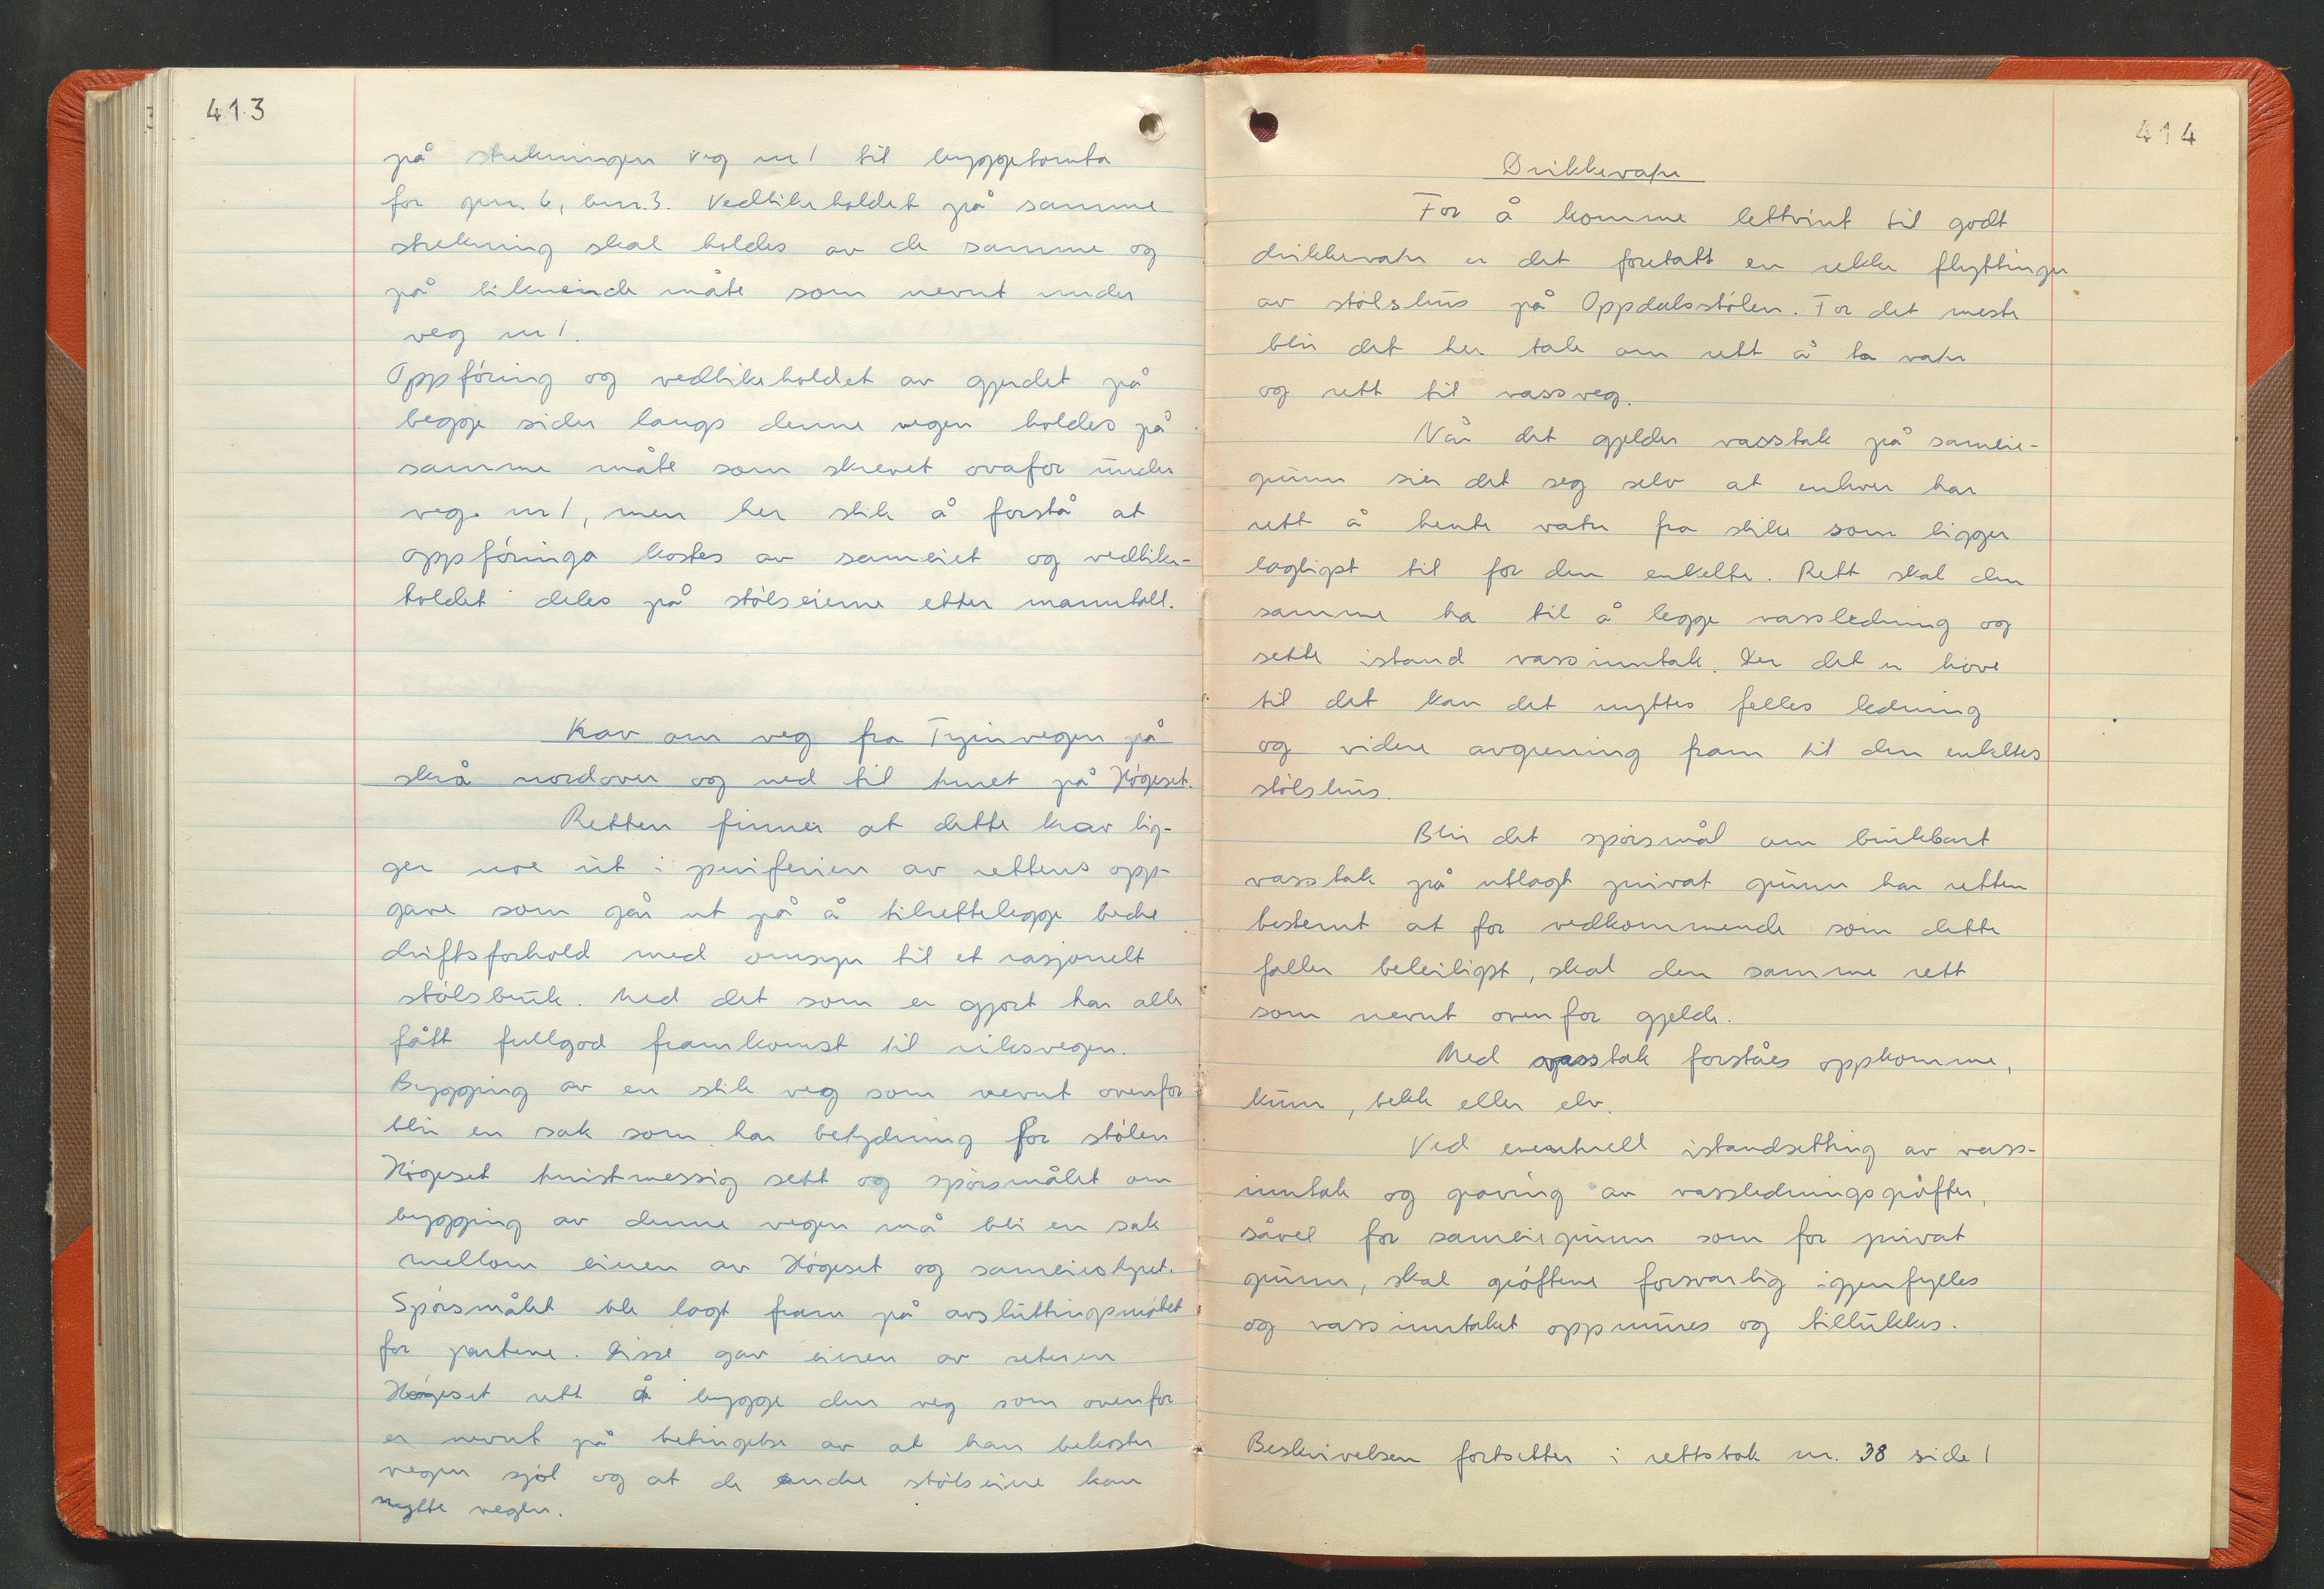 413
på strekningen veg nr 1 til byggetomta
for gnr. 6, bnr. 3. Vedlikeholdet på samme
strekning skal holdes av de samme og
på liknende måte som nevnt under
veg nr 1.
Oppföring og vedlikeholdet av gjerdet på
begge sider langs denne vegen holdes på
samme måte som skrevet ovafor under
veg. nr 1, men her slik å forstå at
oppföringa kostes av sameiet og vedlike-
holdet deles på stölseierne etter manntall.
Krav om veg fra Tyinvegen på
skrå nordover og ned til tunet på Högeset.
Retten finner at dette krav lig-
ger noe ut i periferien av rettens opp-
gave som går ut på å tilrettelegge bedre
driftsforhold med omsyn til et rasjonelt
stölsbruk. Med det som er gjort har alle
fått fullgod framkomst til riksvegen.
Bygging av en slik veg som nevnt ovenfor
blir en sak som har betydning for stölen
Högeset turistmessig sett og spörsmålet om
bygging av denne vegen må bli en sak
mellom eieren av Högeset og sameiestyret.
Spörsmålet ble lagt fram på avsluttingsmötet
for partene. Disse gav eieren av seteren
Högeset rett å bygge den veg som ovenfor
er nevnt på betingelse av at han bekoster
vegen sjöl og at de andre stölseiere kan
nytte vegen.
414
Drikkevatn
For å komme lettvint til godt
drikkevatn er det foretatt en rekke flyttinger
av stölshus på Oppdalsstölen. For det meste
blir det her tale om rett å ta vatn
og rett til vassveg.
Når det gjelder vasstak på sameie-
grunn sier det seg selv at enhver har
rett å hente vatn fra slike som ligger
lagligst til for den enkelte. Rett skal den
samme ha til å legge vassledning og
sette istand vassinntak. Der det er höve
til det kan det nyttes felles ledning
og videre avgrening fram til den enkeltes
stölshus.
Blir det spörsmål om brukbart
vasstak på utlagt privat grunn har retten
bestemt at for vedkommende som dette
faller beleiligst, skal den samme rett
som nevnt ovenfor gjelde.
Med vasstak forståes oppkomme,
kum, bekk eller elv.
Ved eventuell istandsetting av vass-
inntak og graving av vassledningsgröfter,
såvel for sameiegrunn som for privat
grunn, skal gröftene forsvarlig igjenfylles
og vassinntaket oppmures og tillukkes.
Beskrivelsen fortsetter i rettsbok nr. 38 side 1